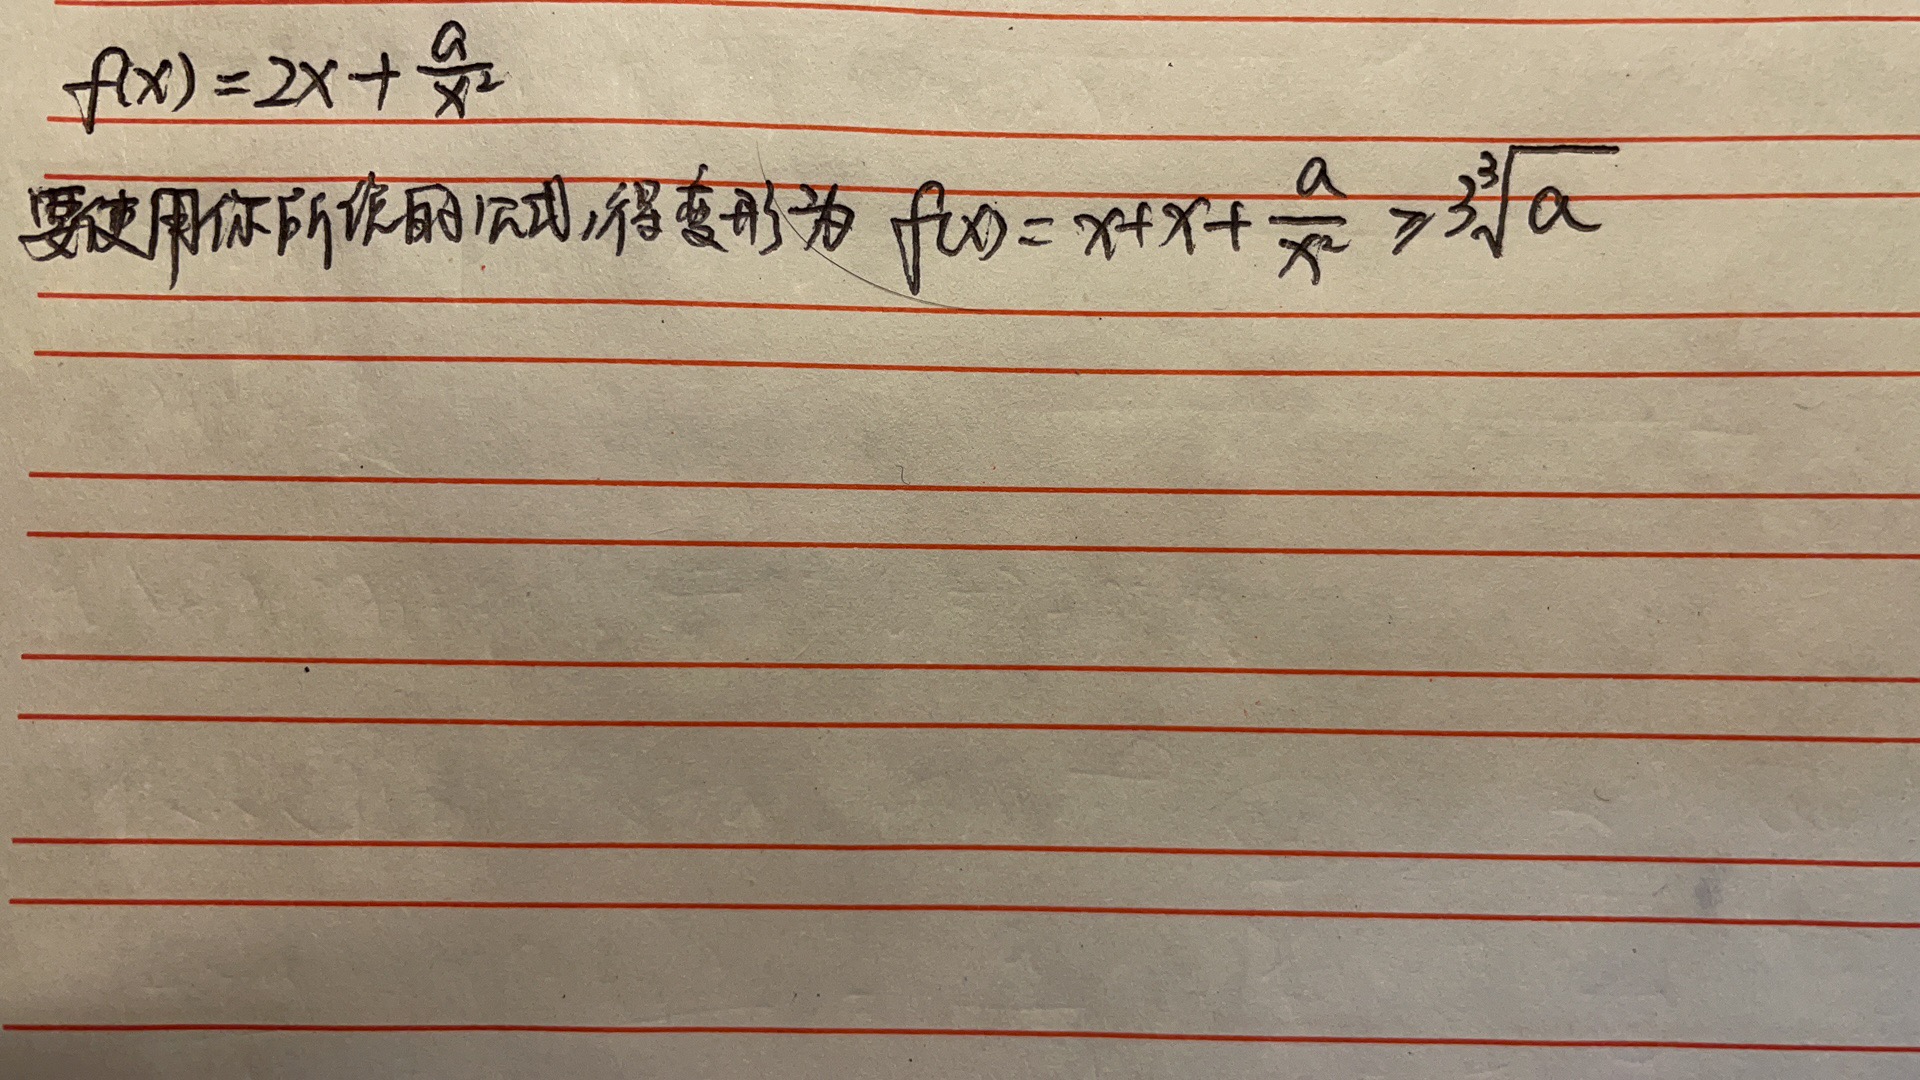 f(x)=2x+a/x²
要使用你所说的公式,得变形为 f(x)=x+x+a/x²≥3∛a